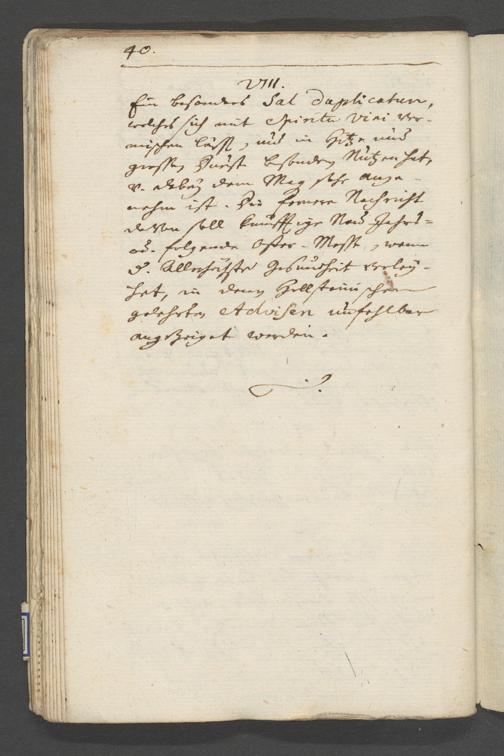 40.
VIII.
Ein besonders Sal duplicatum,
welches sich mit Spiritu Vini ver-
mischen läßt, und in Hitze und
großen Durst besondern Nutzen hat,
v. dabey dem Mag sehr ange-
nehm ist. Die fernere Nachricht
davon soll künfftige Neu Jahrs-
od. folgende Oster-Messe, wenn
d. Allerhöchste Gesundheit verley-
het, in denen
gelehrten Advisen unfehlbar
angezeiget werden.